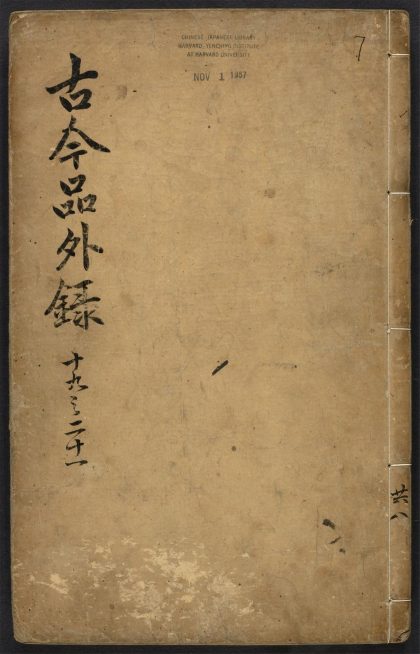 CHINESE JAPANESE LIBRARY
HARVARD-YENCHING INSTITUTE
AT HARVARD UNIVERSITY
NOV 1 1957
7
古今品外録
十九之二十一
共八